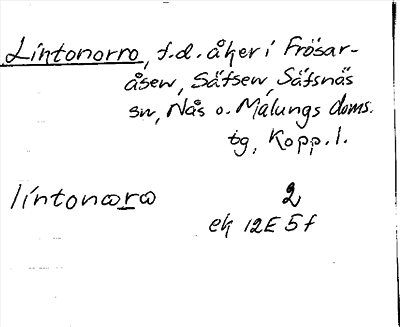 Líntonorro, f.d. åker i Frösar-
åsen, Säfsen, Säfsnäs
sn, Nås o. Malungs doms.
tg, Kopp. l.
líntonωrω 2
ek 12E 5f